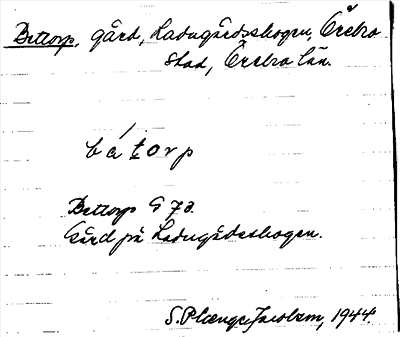 Bettorp, gård, Ladugårdsskogen, Örebro
stad, Örebro län.
bátorp
Bettorp G 7a.
Gård på Ladugårdsskogen.
S. Plænge Jacobson, 1944.